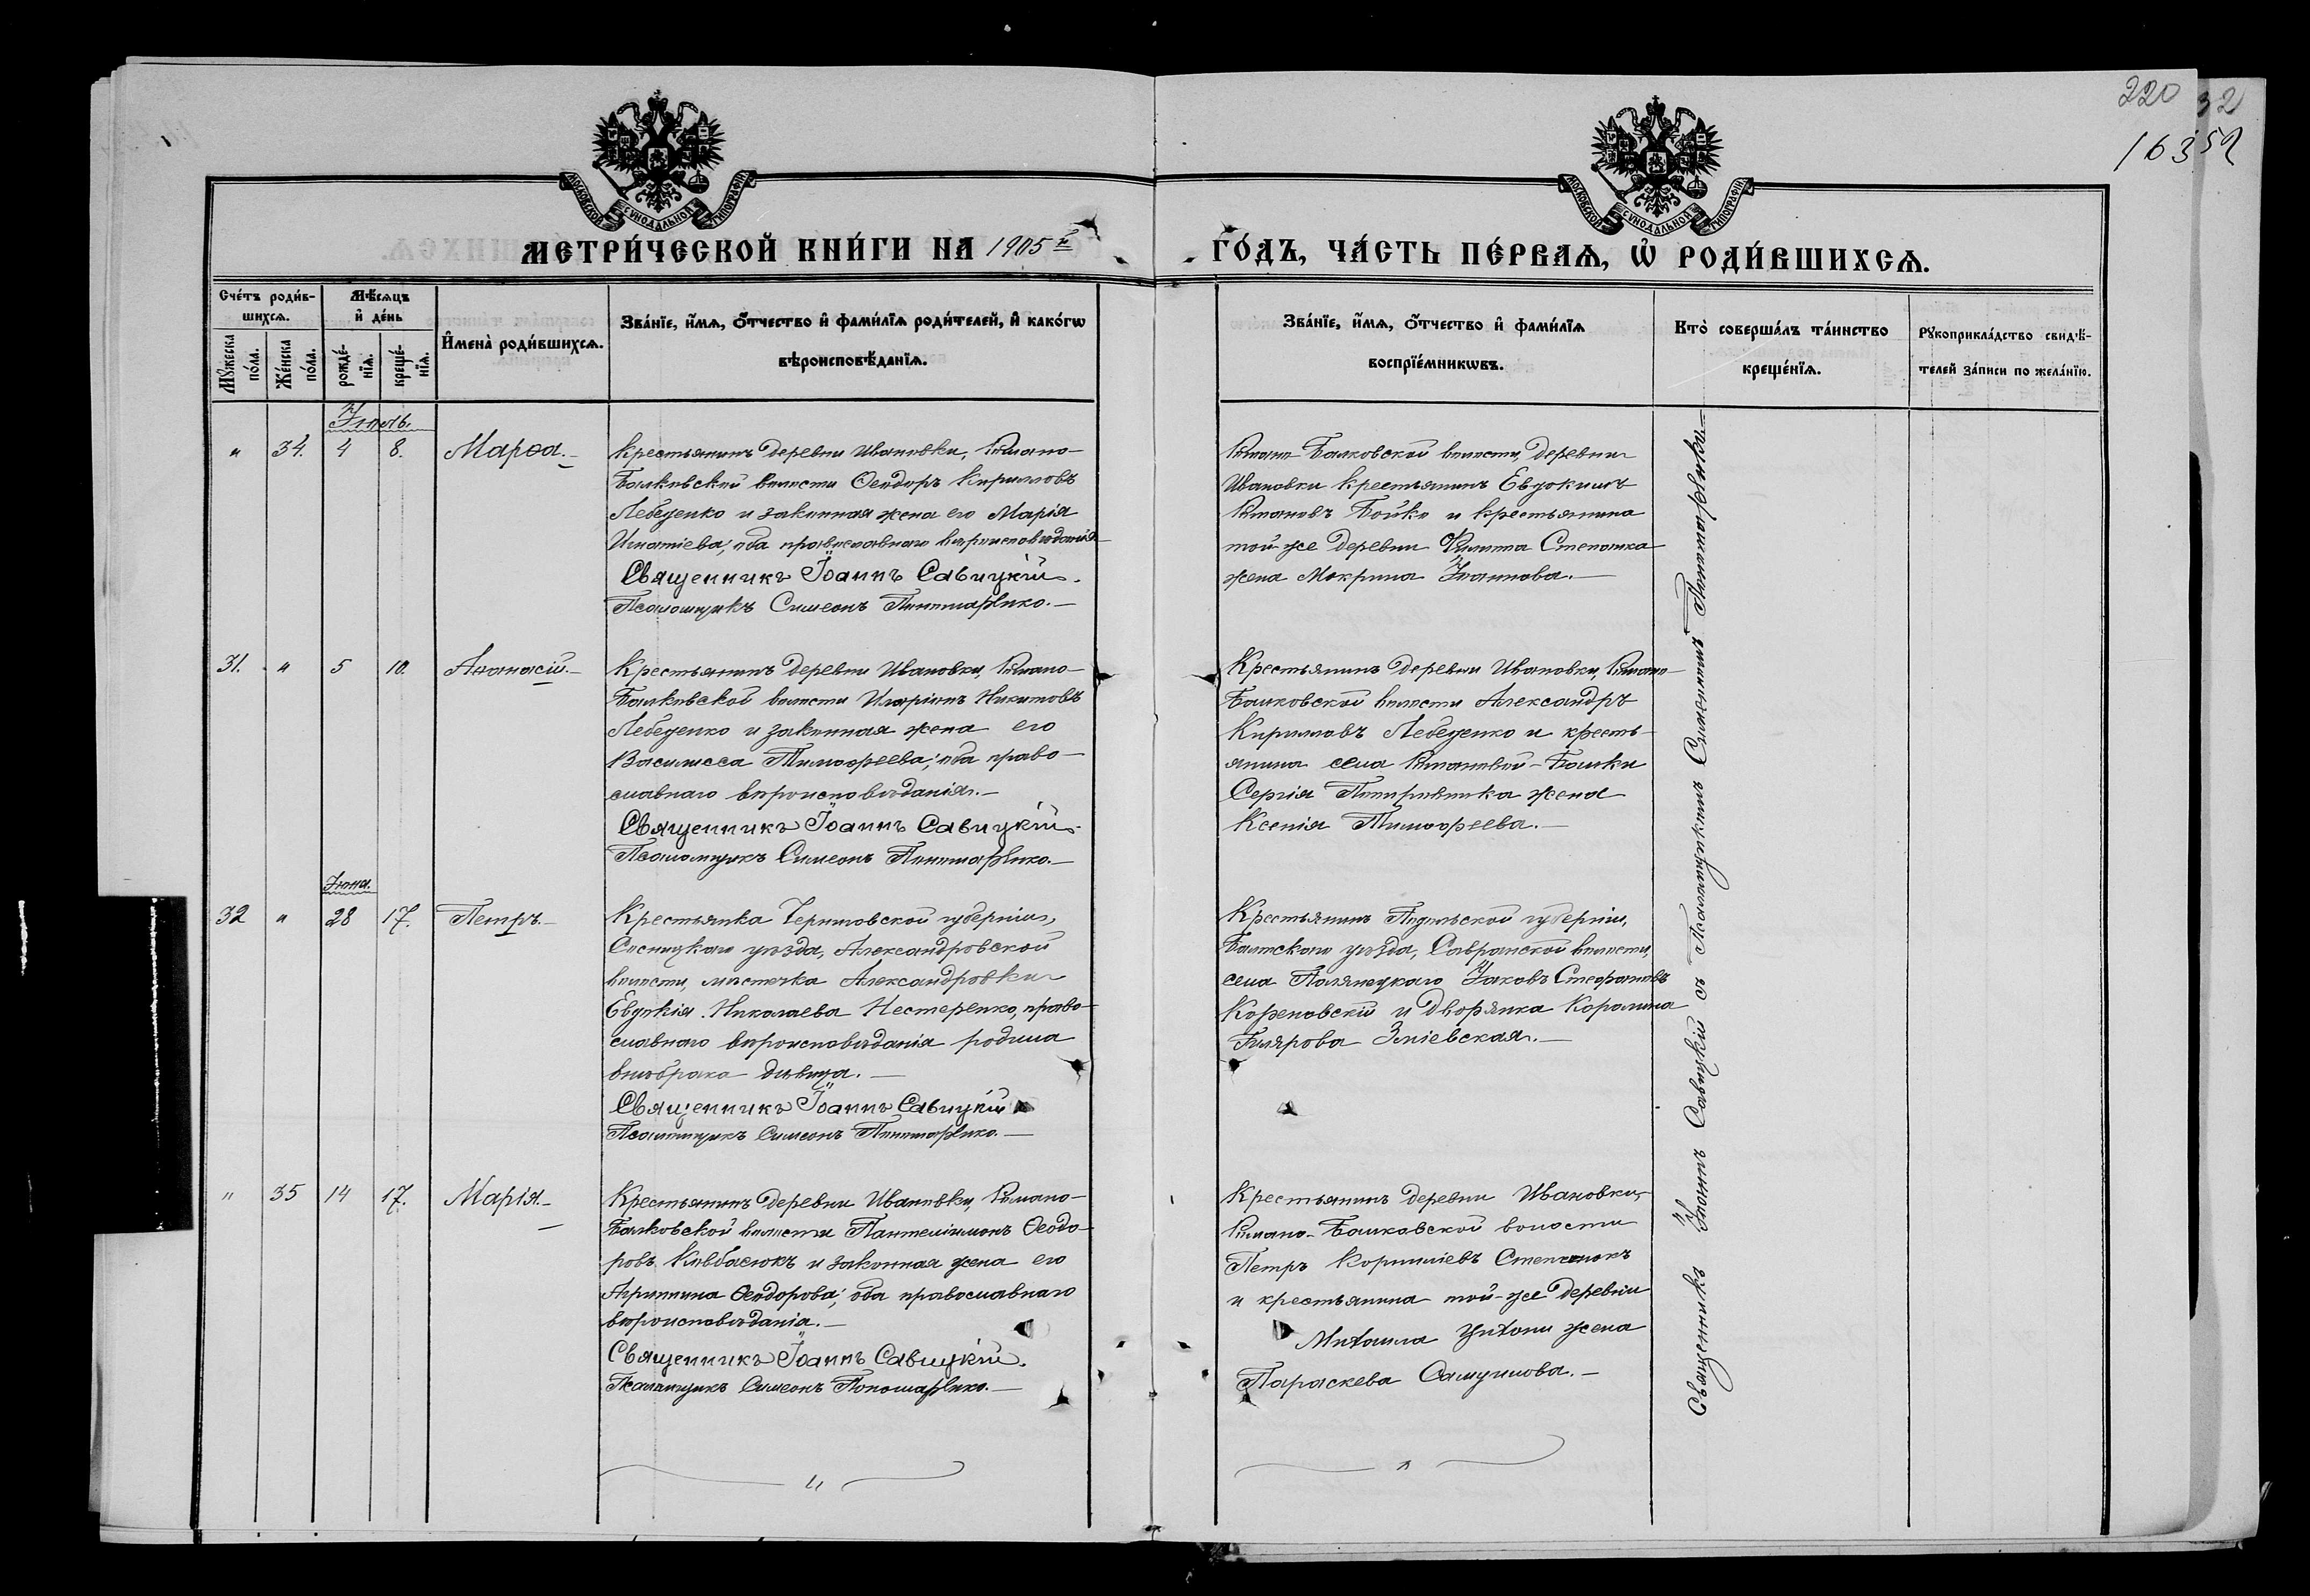 220 32
16352
МОСКОВСКОЙ СѴНОДАЛЬНОЙ ТИПОГРАФІИ
МОСКОВСКОЙ СѴНОДАЛЬНОЙ ТИПОГРАФІИ
МЕТРИ́ЧЕСКОЙ КНИ́ГИ НА 1905 г.
ГО́ДЪ, ЧА́СТЬ ПЕ́РВАѦ, Ѡ҆ РОДИ́ВШИХСѦ.
Сче́тъ роди́в-
шихсѧ.
Мꙋ́жеска по́ла.
Же́нска по́ла.
Мѣ́сѧцъ
и҆ де́нь
рожде́-
нїѧ.
креще́-
нїѧ.
И҆мена̀ роди́вшихсѧ.
Зва́нїе, и҆́мѧ, ѻ҆́тчество и҆ фами́лїѧ роди́телей, и҆ како́гѡ
вѣроисповѣ́данїѧ.
Зва́нїе, и҆́мѧ, ѻ҆́тчество и҆ фами́лїѧ
воспрїе́мникѡвъ.
Кто̀ соверша́лъ та́инство
креще́нїѧ.
Рꙋкоприкла́дство свидѣ́-
телей за́писи по жела́нїю.
Іюль.
" 34. 4 8. Марѳа.
Крестьянинъ деревни Ивановки, Романо-
Балковской волости Ѳеодоръ Кирилловъ
Лебеденко и законная жена его Марія
Игнатіева; оба православнаго вѣроисповѣданія
Священникъ Іоаннъ Савицкій.
Псаломщикъ Симеонъ Пономаренко.
Романо-Балковской волости, деревни
Ивановки крестьянинъ Евдокимъ
Романовъ Бойко и крестьянина
той-же деревни Филиппа Степанюка
жена Мокрина Іоаннова.
31. " 5 10. Аѳанасій.
Крестьянинъ деревни Ивановки, Романо-
Балковской волости Иларіонъ Никитовъ
Лебеденко и законная жена его
Василисса Тимоѳеева; оба право-
славнаго вѣроисповѣданія.
Священникъ Іоаннъ Савицкій.
Псаломщикъ Симеонъ Пономаренко.
Крестьянинъ деревни Ивановки, Романо-
Балковской волости Александръ
Кирилловъ Лебеденко и кресть-
янина села Романовой-Балки
Сергія жена
Ксенія Тимоѳеева.
Іюня.
32 " 28 17. Петръ.
Крестьянка Черниговской губерніи,
Сосницкаго уѣзда, Александровской
волости, мѣстечка Александровки
Евдокія Николаева Нестеренко, право-
славнаго вѣроисповѣданія родила
внѣ брака дѣвица.
Священникъ Іоаннъ Савицкій
Псаломщикъ Симеонъ Пономаренко.
Крестьянинъ Подольской губерніи,
Балтскаго уѣзда, Савранской волости,
села Полянецкаго Іаковъ Стефановъ
Кореновскій и дворянка Каролина
Гилярова Зміевская.
" 35 14 17. Марія.
Крестьянинъ деревни Ивановки, Романо-
Балковской волости Пантелеимонъ Ѳеодо-
ровъ Ковбасюкъ и законная жена его
Агриппина Ѳеодорова; оба православнаго
вѣроисповѣданія.
Священникъ Іоаннъ Савицкій.
Псаломщикъ Симеонъ Пономаренко.
Крестьянинъ деревни Ивановки,
Романо-Балковской волости
Петръ Корниліевъ Степанюкъ
и крестьянина той-же деревни
Михаила жена
Параскева Самуилова.
Священникъ Іоаннъ Савицкій съ Псаломщикомъ Симеономъ Пономаренкомъ